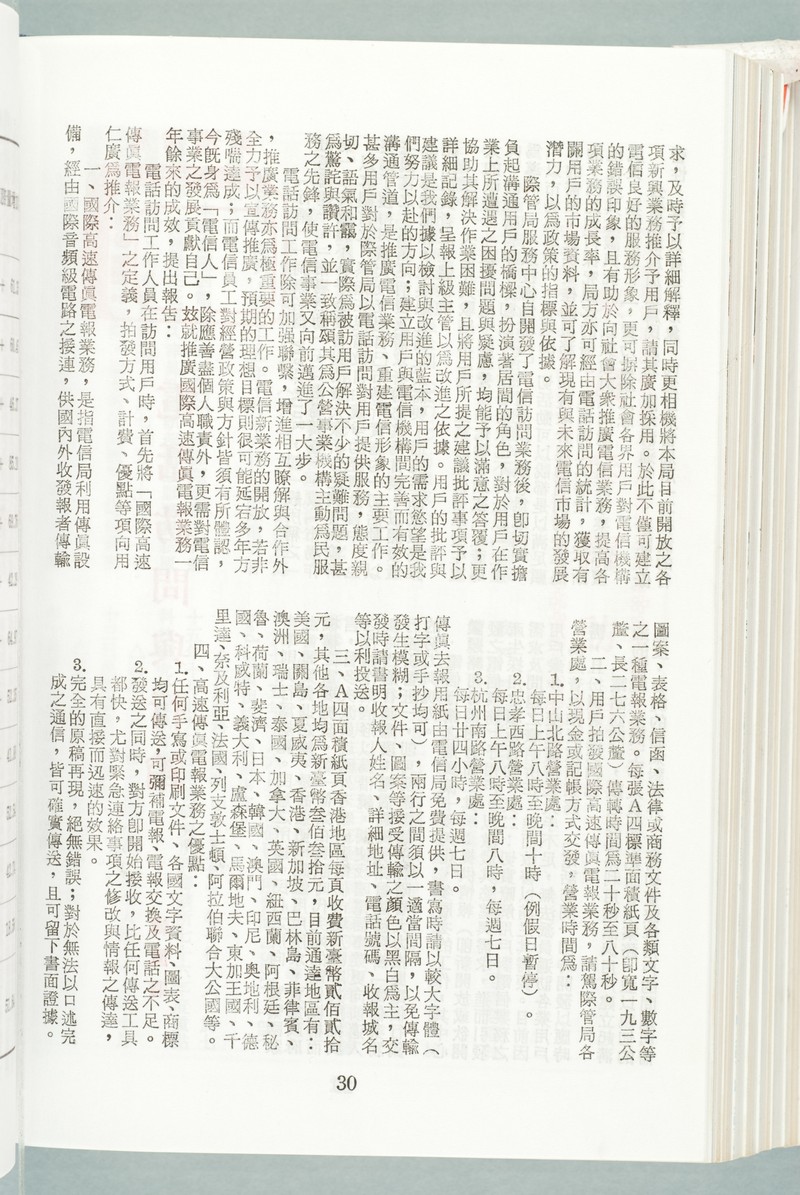 求，及時予以詳細解釋，同時更相機將本局目前開放之各
項新興業務推介予用戶，請其廣加採用。於此不僅可建立
電信良好的服務形象，更可摒除社會各界用戶對電信機構
的錯誤印象，且有助於向社會大衆推廣電信業務，提高各
項業務的成長率，局方亦可經由電話訪問的統計，獲取有
關用戶的市場資料，並可了解現有與未來電信市場的發展
潛力，以爲政策的指標與依據。
際管局服務中心自開發了電信訪問業務後，卽切實擔
負起溝通用戶的橋樑，扮演著居間的角色，對於用戶在作
業上所遭遇之困擾問題與疑慮，均能予以滿意之答覆；更
協助其解決作業困難，且將用戶所提之建議批評事項予以
詳細記錄，呈報上級主管以爲改進之依據。用戶的批評與
建議是我們據以檢討與改進的藍本，用戶的需求慾望是我
們努力以赴的方向；建立用戶與電信機構間完善而有效的
溝通管道，是推廣電信業務、重建電信形象的主要工作。
甚多用戶對於際管局以電話訪問對用戶提供服務，態度親
切、語氣和靄，實際爲被訪用戶解決不少的疑難問題，甚
爲驚詫與讚許，並一致稱頌其爲公營事業機構主動爲民服
務之先鋒，使電信事業又向前邁進了一大步。
電話訪問工作除可加强聯繫，增進相互瞭解與合作外
，推廣業務亦爲極重要的工作。電信新業務的開放，若非
全力予以宣傳推廣，預期的理想目標則很可能延宕多年方
殘喘達成；而電信員工對經營政策與方針皆須有所體認，
今旣身爲「電信人」，除應善盡個人職責外，更需對電信
事業之發展貢獻自己。玆就推廣國際高速傳眞電報業務一
年餘來的成效，提出報告：
電話訪問工作人員在訪問用戶時，首先將「國際高速
傳眞電報業務」之定義，拍發方式、計費、優點等項向用
仁廣爲推介：
一、國際高速傳眞電報業務，是指電信局利用傳眞設
備，經由國際音頻級電路之接連，供國內外收發報者傳輸
圖案、表格、信函、法律或商務文件及各類文字、數字等
之一種電報業務。每張Ａ四標準面積紙頁（卽寬一九三公
釐、長二七六公釐）傳轉時間爲二十秒至八十秒。
二、用戶拍發國際高速傳眞電報業務，請駕際管局各
營業處，以現金或記帳方式交發，營業時間爲：
1.中山北路營業處：
每日上午八時至晚間十時（例假日暫停）。
2.忠孝西路營業處：
每日上午八時至晚間八時，每週七日。
3.杭州南路營業處：
每日廿四小時，每週七日。
傳眞去報用紙由電信局免費提供，書寫時請以較大字體（
打字或手抄均可），兩行之間須以一適當間隔，以免傳輸
發生模糊；文件、圖案等接受傳輸之顏色以黑白爲主，交
發時請書明收報人姓名、詳細地址、電話號碼、收報城名
等以利投送。
三、Ａ四面積紙頁香港地區每頁收費新臺幣貳佰貳拾
元，其他各地均爲新臺幣叁佰叁拾元，目前通達地區有：
美國、關島、夏威夷、香港、新加坡、巴林島、菲律賓、
澳洲、瑞士、泰國、加拿大、英國、紐西蘭、阿根廷、秘
魯、荷蘭、斐濟、日本、韓國、澳門、印尼、奧地利、德
國、科威特、義大利、盧森堡、馬爾地夫、東加王國、千
里達、奈及利亞、法國、列支敦士頓、阿拉伯聯合大公國等。
四、高速傳眞電報業務之優點：
1.任何手寫或印刷文件、各國文字資料、圖表、商標
均可傳送，可彌補電報、電報交換及電話之不足。
2.發送之同時，對方卽開始接收，比任何傳送工具
都快，尤對緊急連絡事項之修改與情報之傳達，
具有直接而迅速的效果。
3.完全的原稿再現，絕無錯誤；對於無法以口述完
成之通信，皆可確實傳送，且可留下書面證據。
30